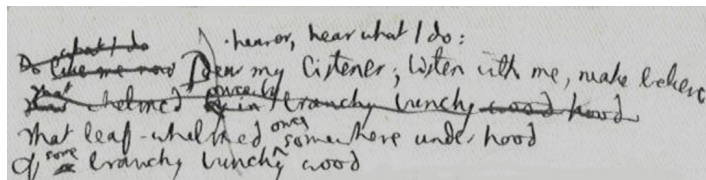 what I do · hearer, hear what I do:
Do like me now Dear my listener; listen with me, make believe
That whelmed in branchy bunchy wood hood
That leaf-whelmed once somewhere under hood
Of some branchy bunchy wood